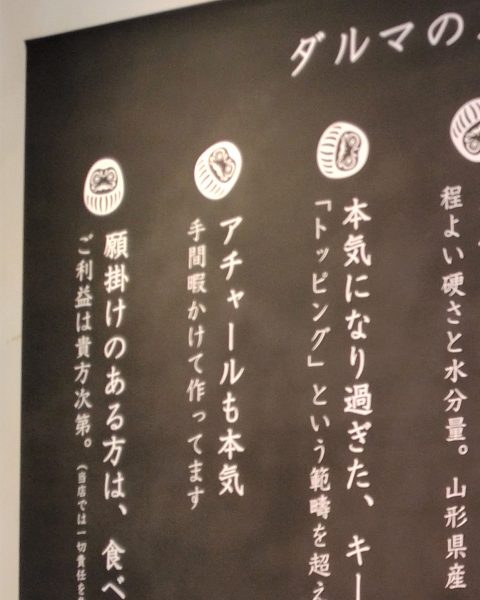 ダルマの
程よい硬さと水分量。山形県産
本気になり過ぎた、キー
「トッピング」という範疇を超え
アチャールも本気
手間暇かけて作ってます
願掛けのある方は、食べ
ご利益は貴方次第。(当店では一切責任を